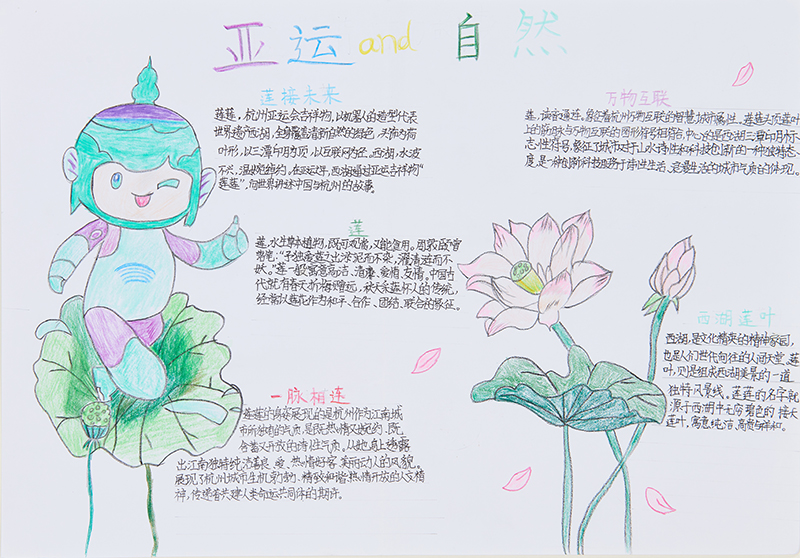 亚运and自然
莲接未来
莲莲，杭州亚运会吉祥物，以机器人的造型代表
世界遗产西湖，全身覆盖清新自然的绿色，头饰为荷
叶形，以三潭印月为顶，以互联网为径。西湖，水波
不兴，温婉绰约。在亚运年，西湖通过亚运吉祥物“
莲莲”，向世界讲述中国与杭州的故事。
莲
莲，水生草本植物，既可观赏，又能食用。周敦颐曾
赞扬：“予独爱莲之出淤泥而不染，濯清涟而不
妖。”莲一般寓意高洁、清廉、爱情、友情。中国古
代就有春天折梅赠远，秋天采莲怀人的传统，
经常以莲花作为和平、合作、团结、联合的象征。
一脉相连
莲莲的身姿展现的是杭州作为江南城
市所独有的气质，是既热情又婉约、既
含蓄又开放的诗性气质。从她身上透露
出江南独特纯洁善良、热情好客、美丽动人的风貌。
展现了杭州城市生机勃勃、精致和谐、热情开放的人文精
神，传递着共建人类命运共同体的期许。
万物互联
莲，谐音通连。象征着杭州万物互联的智慧城市属性。莲莲头顶莲叶
上的放射状与万物互联的图形符号相符合，中心的是西湖三潭印月标
志性符号，象征了城市对于山水诗性和科技创新的一种独特态
度，是一种创新科技回荡于诗性生活、追崇生活的城市气质的体现。
西湖莲叶
西湖，是文化精英的精神家园，
也是人们世代向往的人间天堂。莲
叶，则是组成西湖美景的一道
独特风景线。莲莲的名字就
源于西湖中无穷碧色的接天
莲叶，寓意纯洁、高贵与祥和。